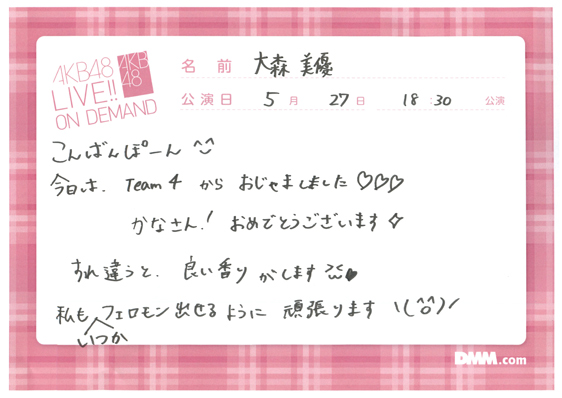 AKB48
LIVE!!
ON DEMAND
AKB
48
名前 大森美優
公演日 5月 27日 18:30 公演
こんばんぽーん ^^
今日は、Team 4 からおじゃましました♡♡♡
かなさん! おめでとうございます✧
すれ違うと、良い香りがします♥
私もフェロモン出せるように頑張ります \(^o^)/
いつか
DMM.com